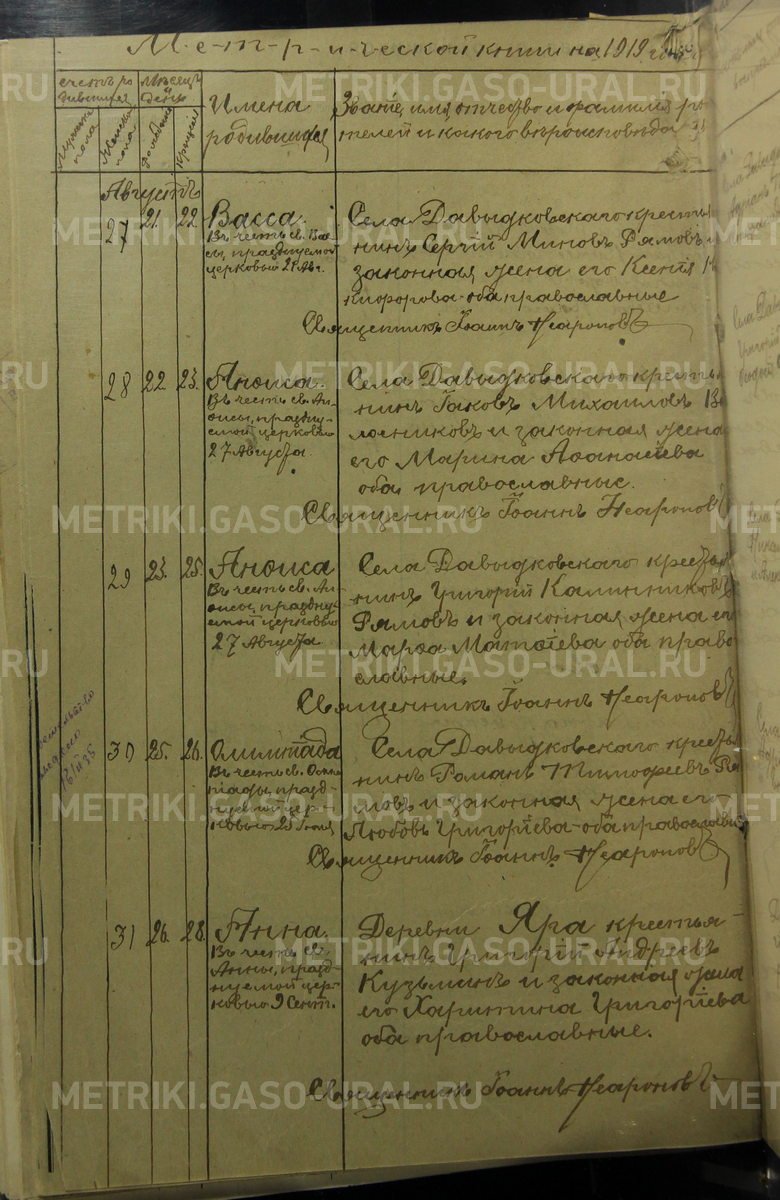 М-е-т-р-и-ческой книги на 1919 годъ
счетъ ро
дившихся
Мѣсяцъ
день
Мужска
пола
Женска
пола
рожденія
крещенія
Имена
родившихся
Званіе, имя, отчество и фамилія ро
телей и какого вѣроисповѣда
Августъ
27 21. 22. Васса.
Въ честь св. Вас
сы, празднуемой
церковью 21 Авг.
Села Давыдковскаго кресть
нинъ Сергій Миновъ Рямовъ
законная жена его Ксенія Н
кифорова оба православные
Священникъ Іоаннъ Неароновъ
28 22. 23. Анѳиса.
Въ честь св. Ан
ѳисы, праздну
емой церковью
27 Августа.
Села Давыдковскаго кресть
нинъ Іаковъ Михаиловъ
и законная жена
его Марина Аѳанасіева
оба православные.
Священникъ Іоаннъ Неароновъ
29 23. 25. Анѳиса
Въ честь св. Ан
ѳисы, праздну
емой церковью
27 Августа
Села Давыдковскаго кресть
нинъ Григорій Калинниковъ
Рямовъ и законная жена ег
Марѳа Матѳіева оба право
славные.
Священникъ Іоаннъ Неароновъ
30 25. 26. Олимпіада
Въ честь св. Олим
піады, празд-
нуемой цер-
ковью 25 Іюля
Села Давыдковскаго кресть
нинъ Романъ Тимоѳеевъ Ря
мовъ и законная жена его
Любовь Григоріева оба православн
Священникъ Іоаннъ Неароновъ
31 26. 28. Анна.
Въ честь св.
Анны, празд-
нуемой цер
ковью 9 Сент.
Деревни Яра крестья-
нинъ Григорій Андреевъ
Кузьминъ и законная жена
его Харитина Григоріева
оба православные.
Священникъ Іоаннъ Неароновъ
METRIKI.GASO-URAL.RU